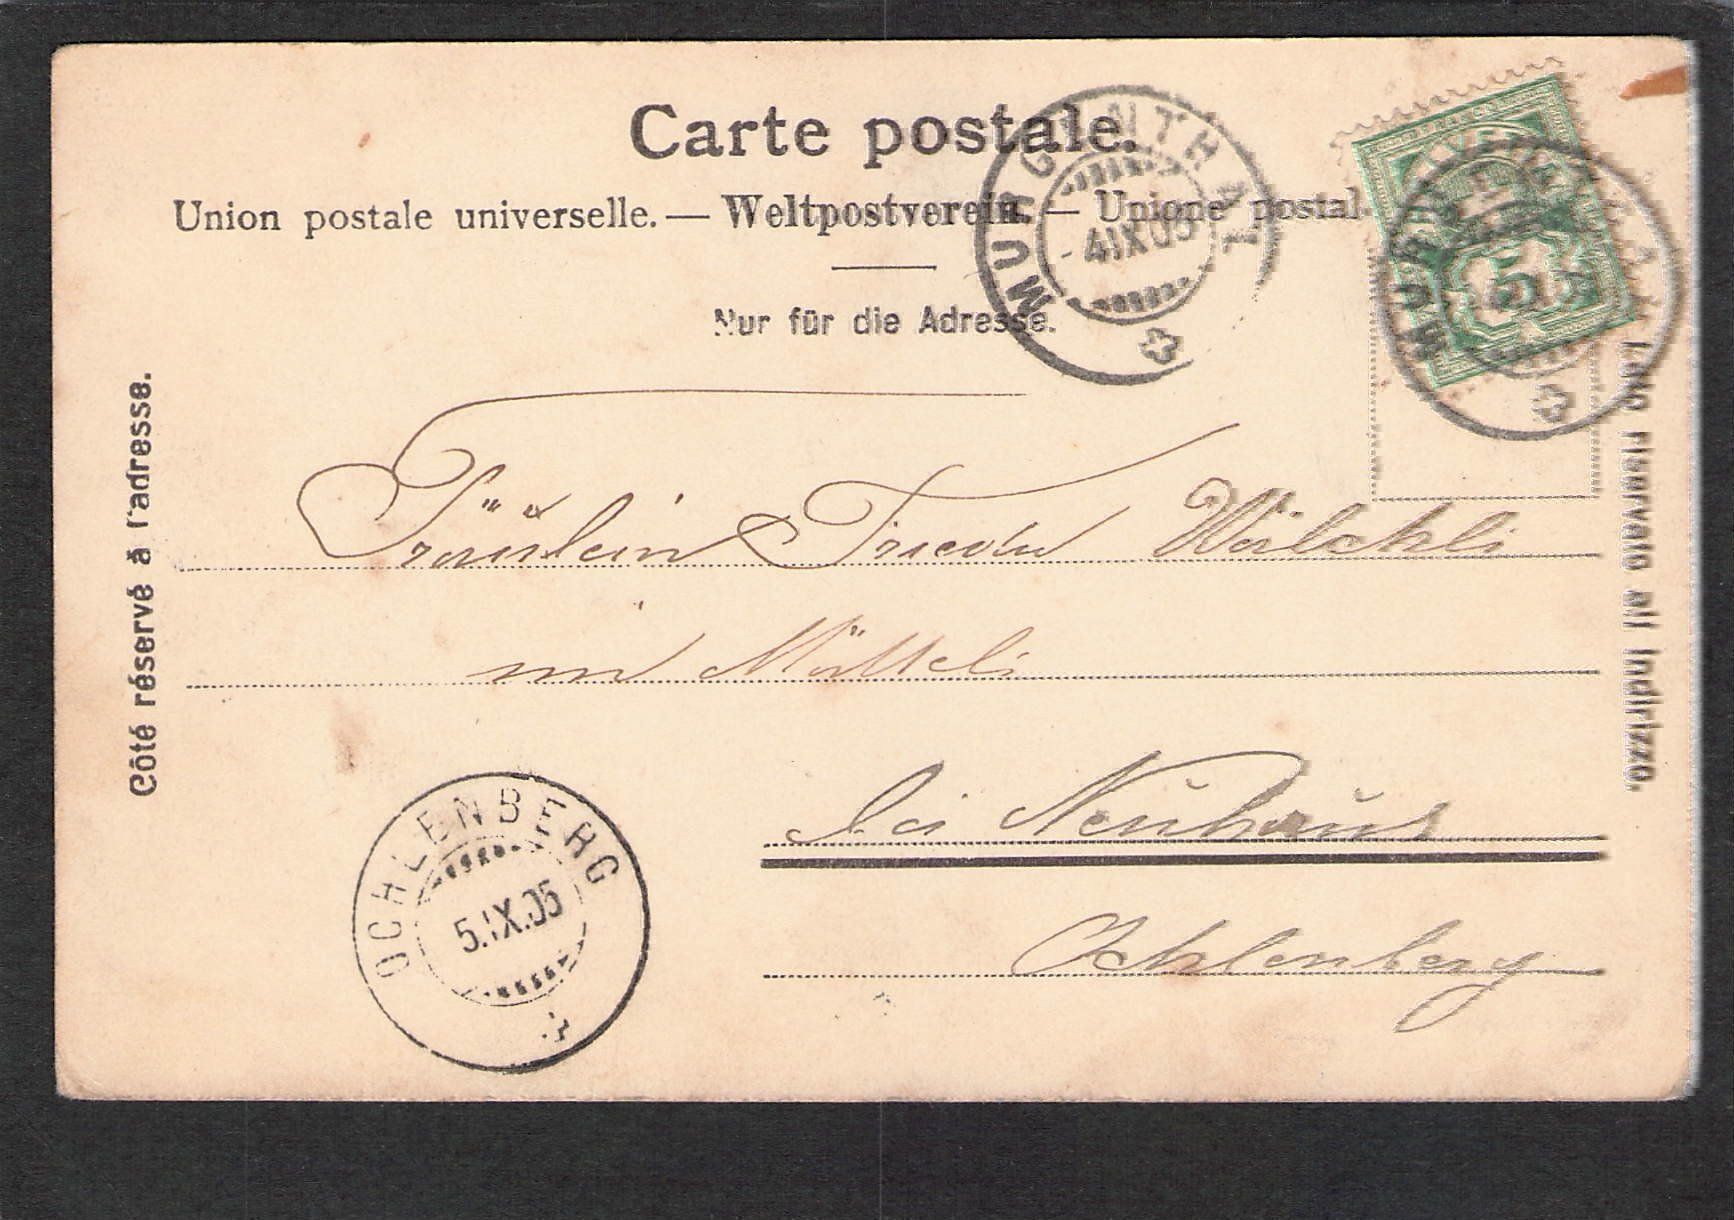 Carte postale.
Union postale universelle. — Weltpostverein. — Unione postal
Nur für die Adresse.
Côté réservé à l'adresse.
Lato riservato all' Indirizzo.
MURGENTHAL
- 4.IX.05
5
MURGENTHAL
Fräulein Frieda Wälchli
im Mätteli
bei Neuhaus
Ochlenberg
OCHLENBERG
5.IX.05